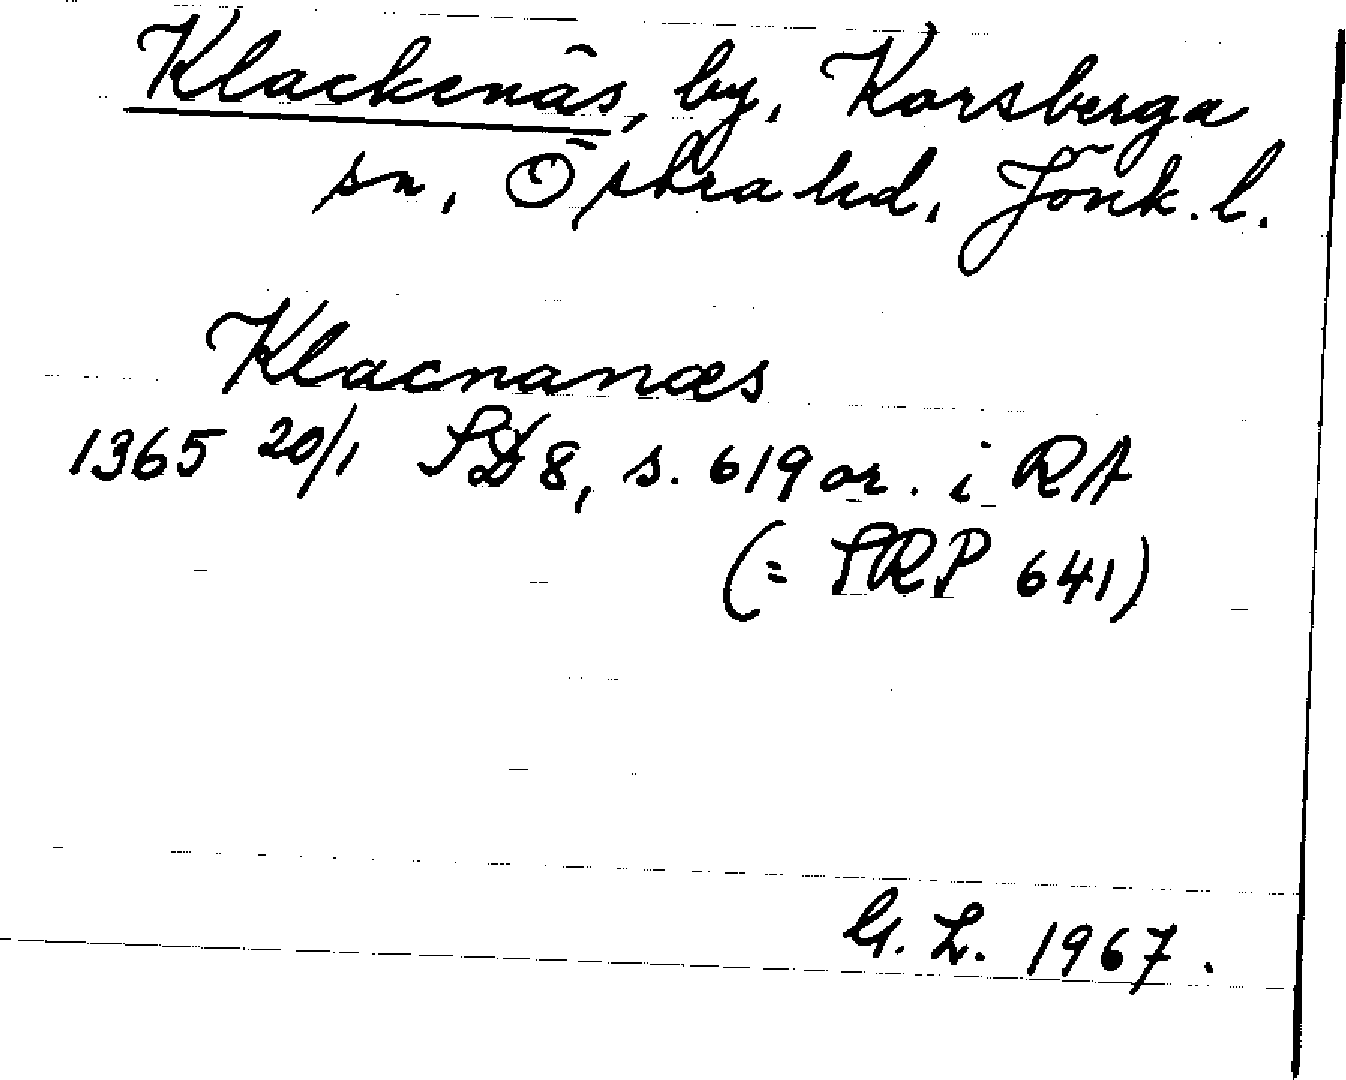 Klackenäs, by, Korsberga
sn, Östra hd, Jönk. l.
Klacnanæs
1365 20/1 SD 8, s. 619 or. i RA
(= SRP 641)
G. L. 1967.